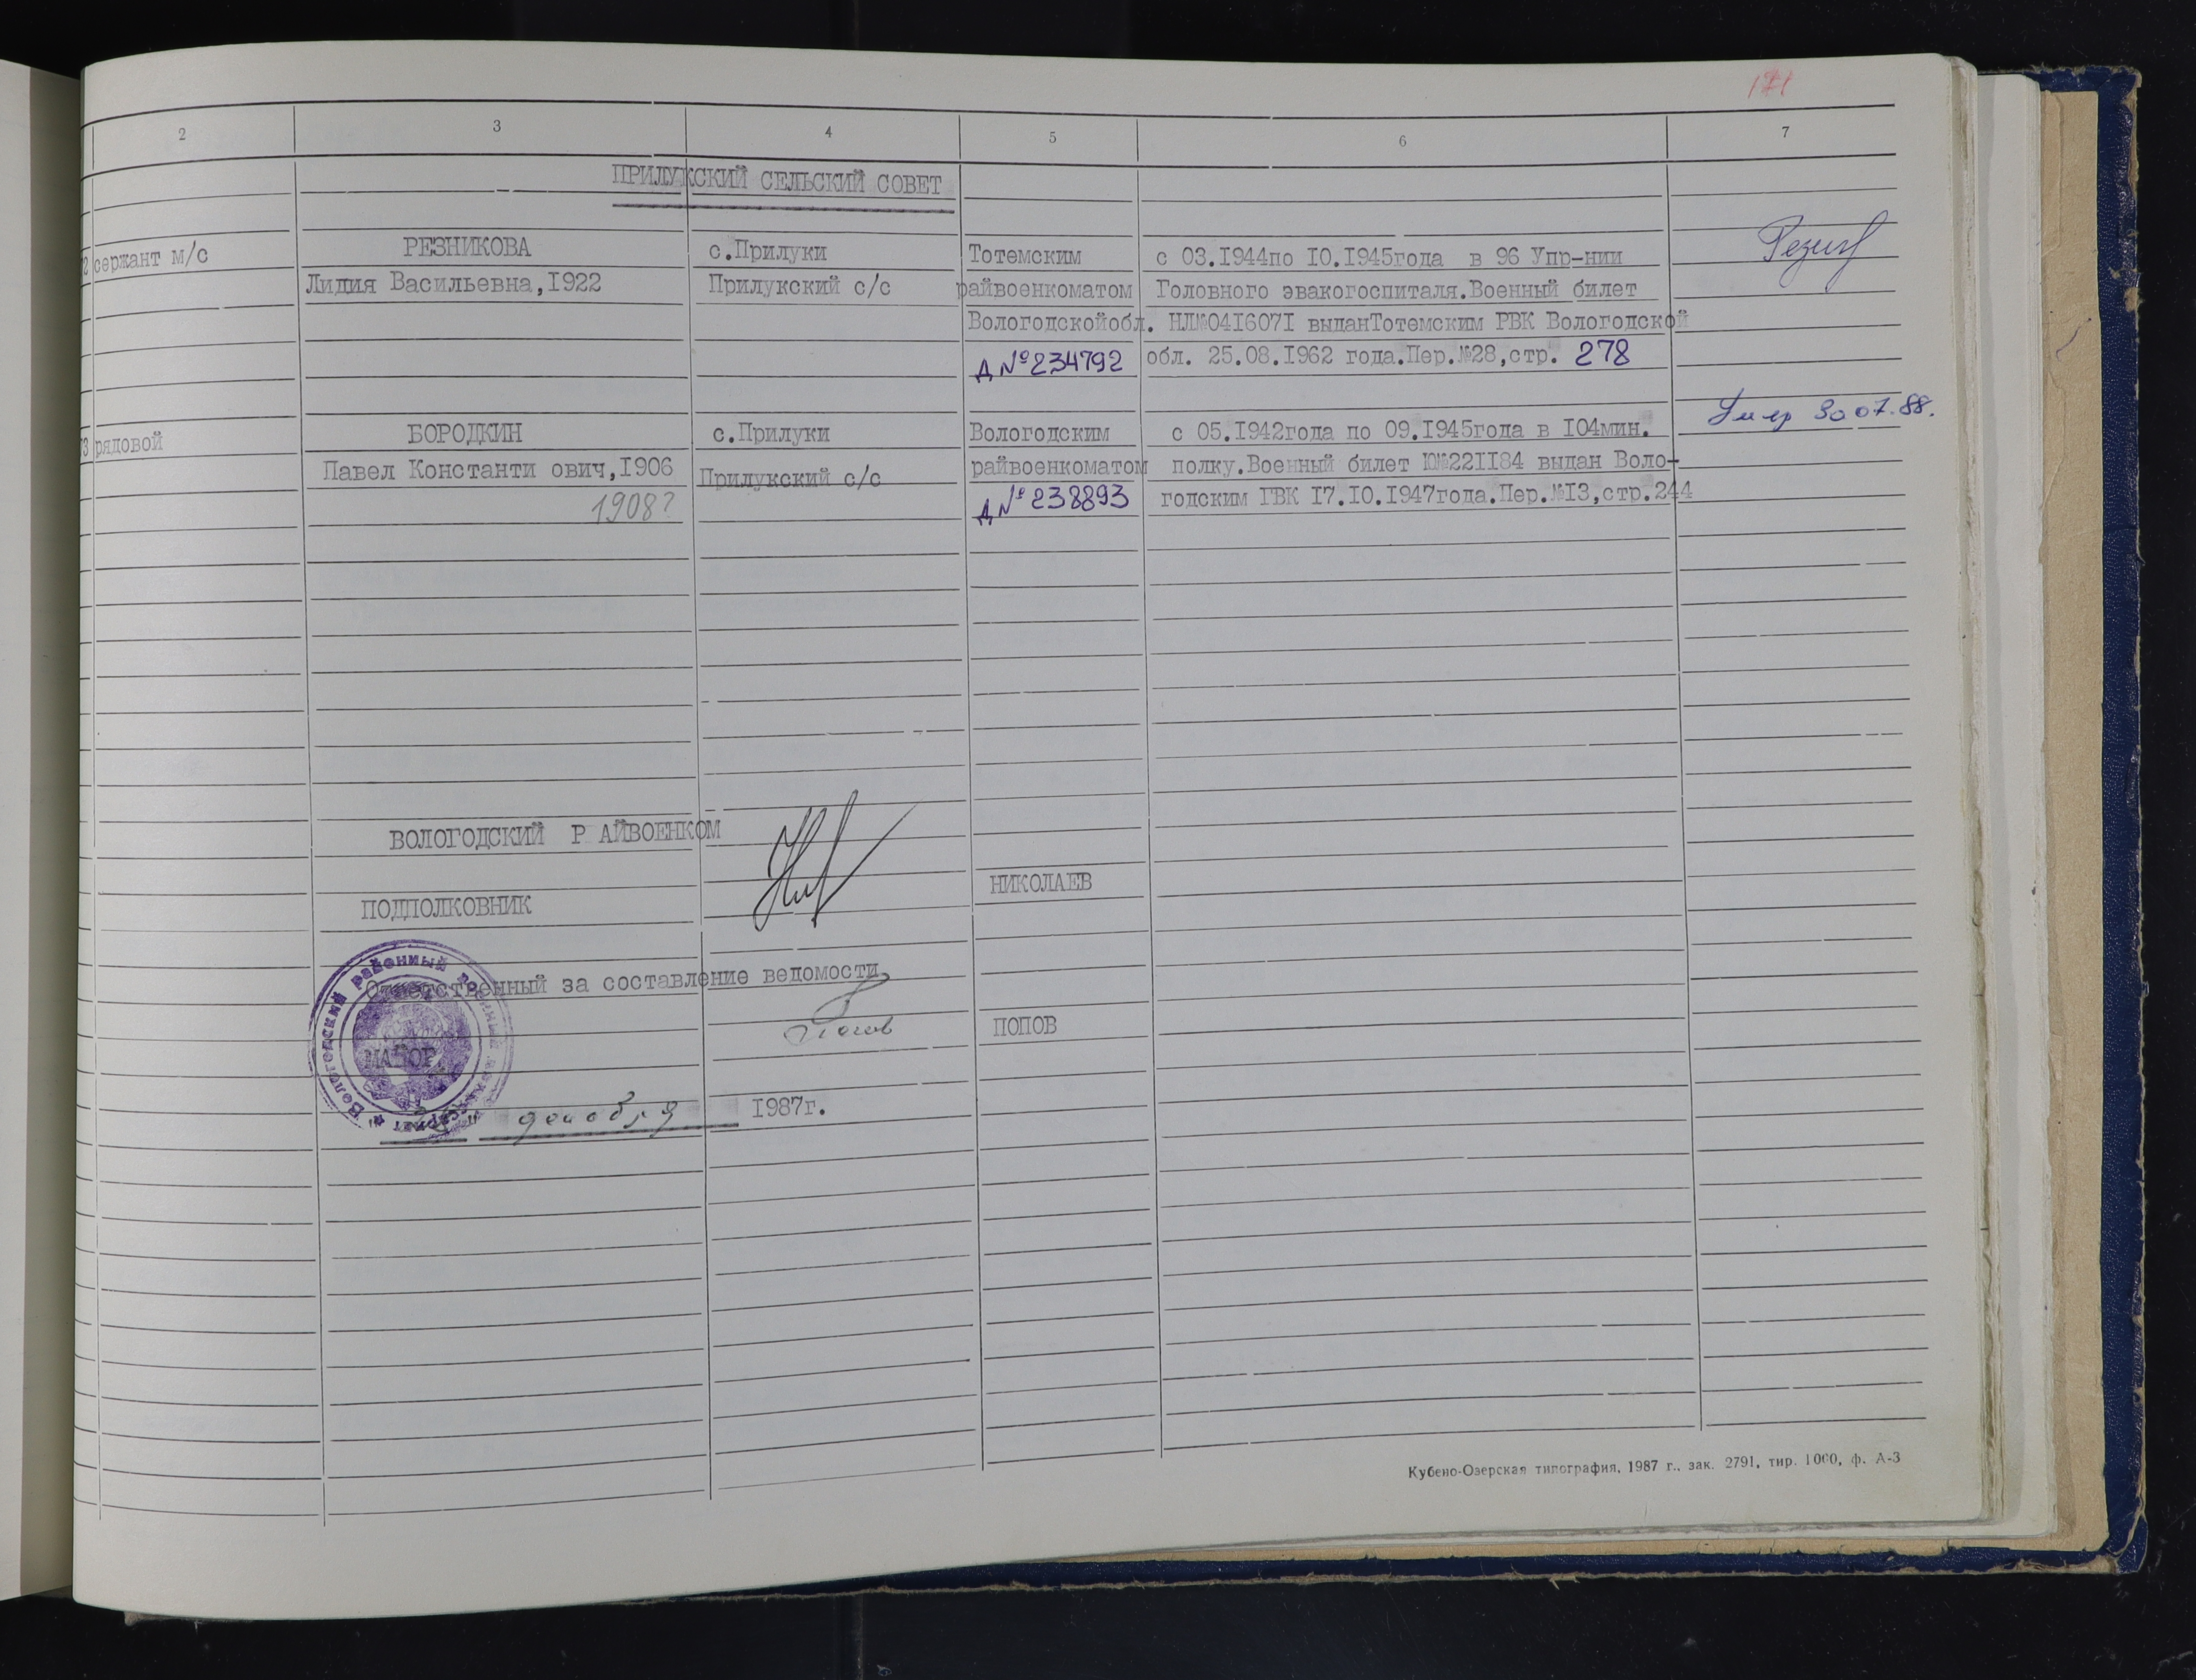 171
2 3 4 5 6 7
ПРИЛУКСКИЙ СЕЛЬСКИЙ СОВЕТ
2 сержант м/с РЕЗНИКОВА с.Прилуки Тотемским с 03.1944по 10.1945года в 96 Упр-нии
Лидия Васильевна,1922 Прилукский с/с райвоенкоматом Головного эвакогоспиталя.Военный билет
Вологодскойобл. НЛ№0416071 выданТотемским РВК Вологодской
Д №234792 обл. 25.08.1962 года.Пер.№28,стр. 278
3 рядовой БОРОДКИН с.Прилуки Вологодским с 05.1942года по 09.1945года в 104мин. Умер 30 07.88.
Павел Константи ович,1906 Прилукский с/с райвоенкоматом полку.Военный билет Ю№2211184 выдан Воло-
1908? Д №238893 годским ГВК 17.10.1947года.Пер.№13,стр.244
ВОЛОГОДСКИЙ Р АЙВОЕНКОМ
ПОДПОЛКОВНИК НИКОЛАЕВ
Ответственный за составление ведомости
МАЙОР Попов ПОПОВ
декабря 1987г.
Вологодский районный военный комиссариат
Кубено-Озерская типография, 1987 г., зак. 2791, тир. 1000, ф. А-3